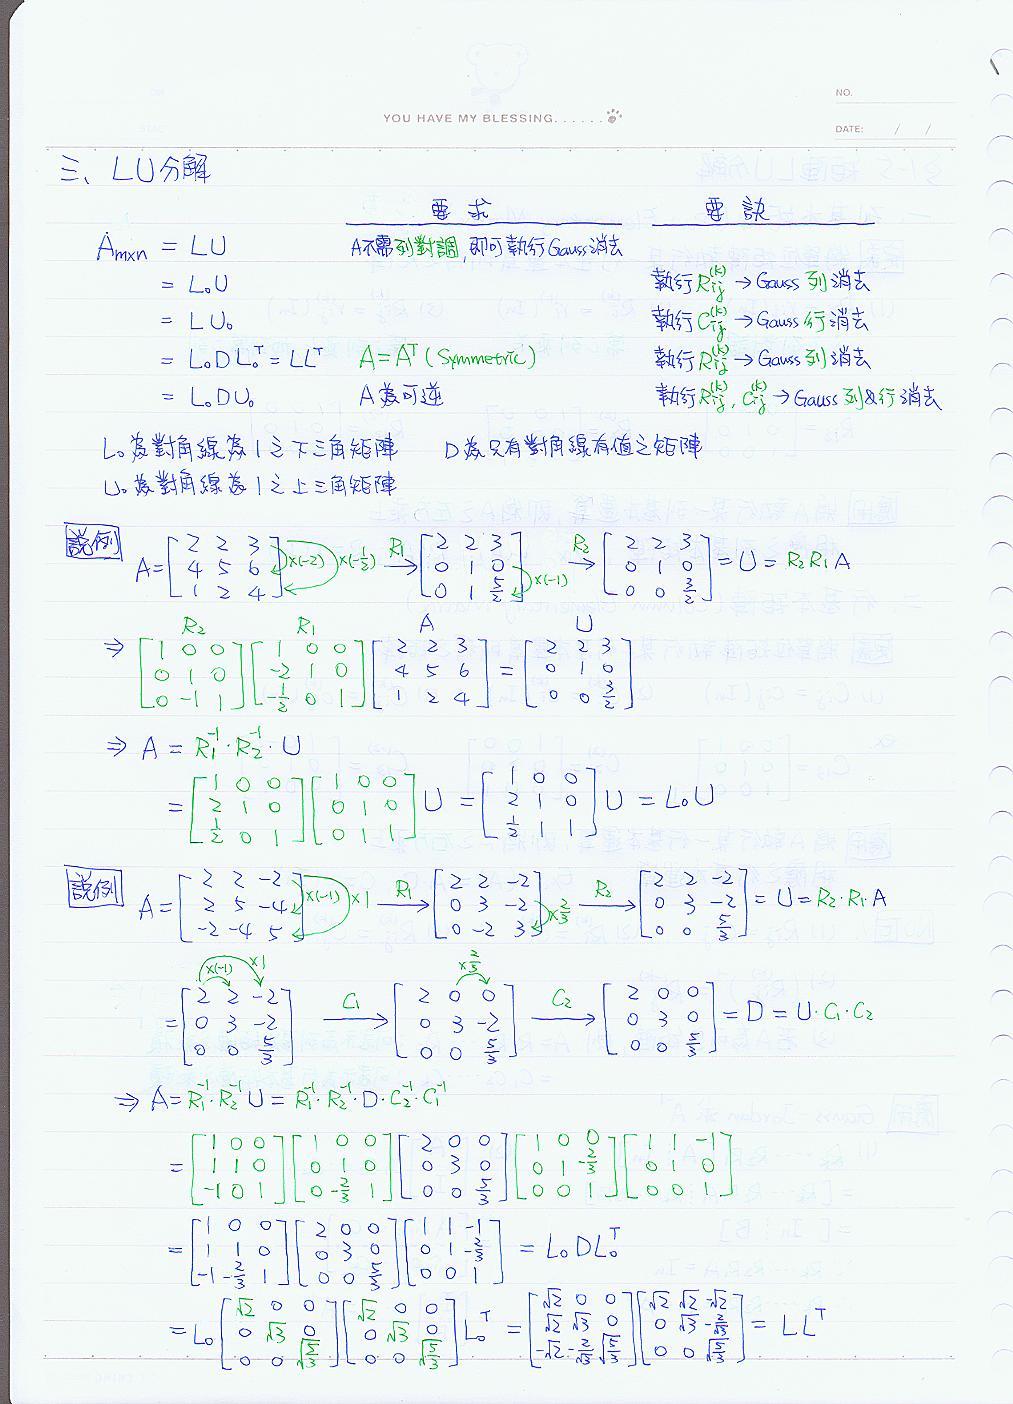 YOU HAVE MY BLESSING......
NO.
DATE: / /
三、LU分解
要求 要訣
Aₘₓₙ = LU A不需列對調,即可執行Gauss消去
= L₀U 執行Rij^(k) → Gauss 列消去
= LU₀ 執行Cij^(k) → Gauss 行消去
= L₀DL₀ᵀ = LLᵀ A=Aᵀ (Symmetric) 執行Rij^(k) → Gauss列消去
= L₀DU₀ A為可逆 執行Rij^(k), Cij^(k) → Gauss 列&行消去
L₀為對角線為1之下三角矩陣 D為只有對角線有值之矩陣
U₀為對角線為1之上三角矩陣
說例
A = [2 2 3; 4 5 6; 1 2 4] ×(-2) ×(-1/2) R₁→ [2 2 3; 0 1 0; 0 1 5/2] ×(-1) R₂→ [2 2 3; 0 1 0; 0 0 3/2] = U = R₂R₁A
R₂ R₁ A U
⇒ [1 0 0; 0 1 0; 0 -1 1] [1 0 0; -2 1 0; -1/2 0 1] [2 2 3; 4 5 6; 1 2 4] = [2 2 3; 0 1 0; 0 0 3/2]
⇒ A = R₁⁻¹·R₂⁻¹·U
= [1 0 0; 2 1 0; 1/2 0 1] [1 0 0; 0 1 0; 0 1 1] U = [1 0 0; 2 1 0; 1/2 1 1] U = L₀U
說例
A = [2 2 -2; 2 5 -4; -2 -4 5] ×(-1) ×1 R₁→ [2 2 -2; 0 3 -2; 0 -2 3] ×2/3 R₂→ [2 2 -2; 0 3 -2; 0 0 5/3] = U = R₂·R₁·A
×(-1) ×1 ×2/3
= [2 2 -2; 0 3 -2; 0 0 5/3] C₁→ [2 0 0; 0 3 -2; 0 0 5/3] C₂→ [2 0 0; 0 3 0; 0 0 5/3] = D = U·C₁·C₂
⇒ A = R₁⁻¹·R₂⁻¹U = R₁⁻¹·R₂⁻¹·D·C₂⁻¹·C₁⁻¹
= [1 0 0; 1 1 0; -1 0 1] [1 0 0; 0 1 0; 0 -2/3 1] [2 0 0; 0 3 0; 0 0 5/3] [1 0 0; 0 1 -2/3; 0 0 1] [1 1 -1; 0 1 0; 0 0 1]
= [1 0 0; 1 1 0; -1 -2/3 1] [2 0 0; 0 3 0; 0 0 5/3] [1 1 -1; 0 1 -2/3; 0 0 1] = L₀DL₀ᵀ
= L₀ [√2 0 0; 0 √3 0; 0 0 √(5/3)] [√2 0 0; 0 √3 0; 0 0 √(5/3)] L₀ᵀ = [√2 0 0; √2 √3 0; -√2 -2/√3 √(5/3)] [√2 √2 -√2; 0 √3 -2/√3; 0 0 √(5/3)] = LLᵀ